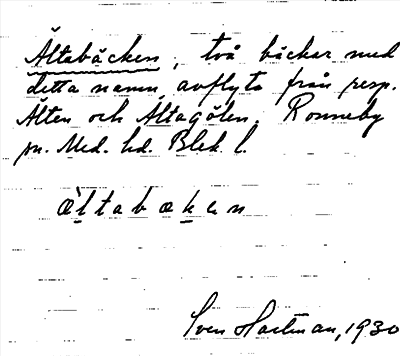 Ältabäcken, två bäckar med
detta namn, avflyta från resp.
Älten och Ältagölen. Ronneby
sn. Med. hd. Blek. l.
æ̀ltabæken
Sven Hartman, 1930